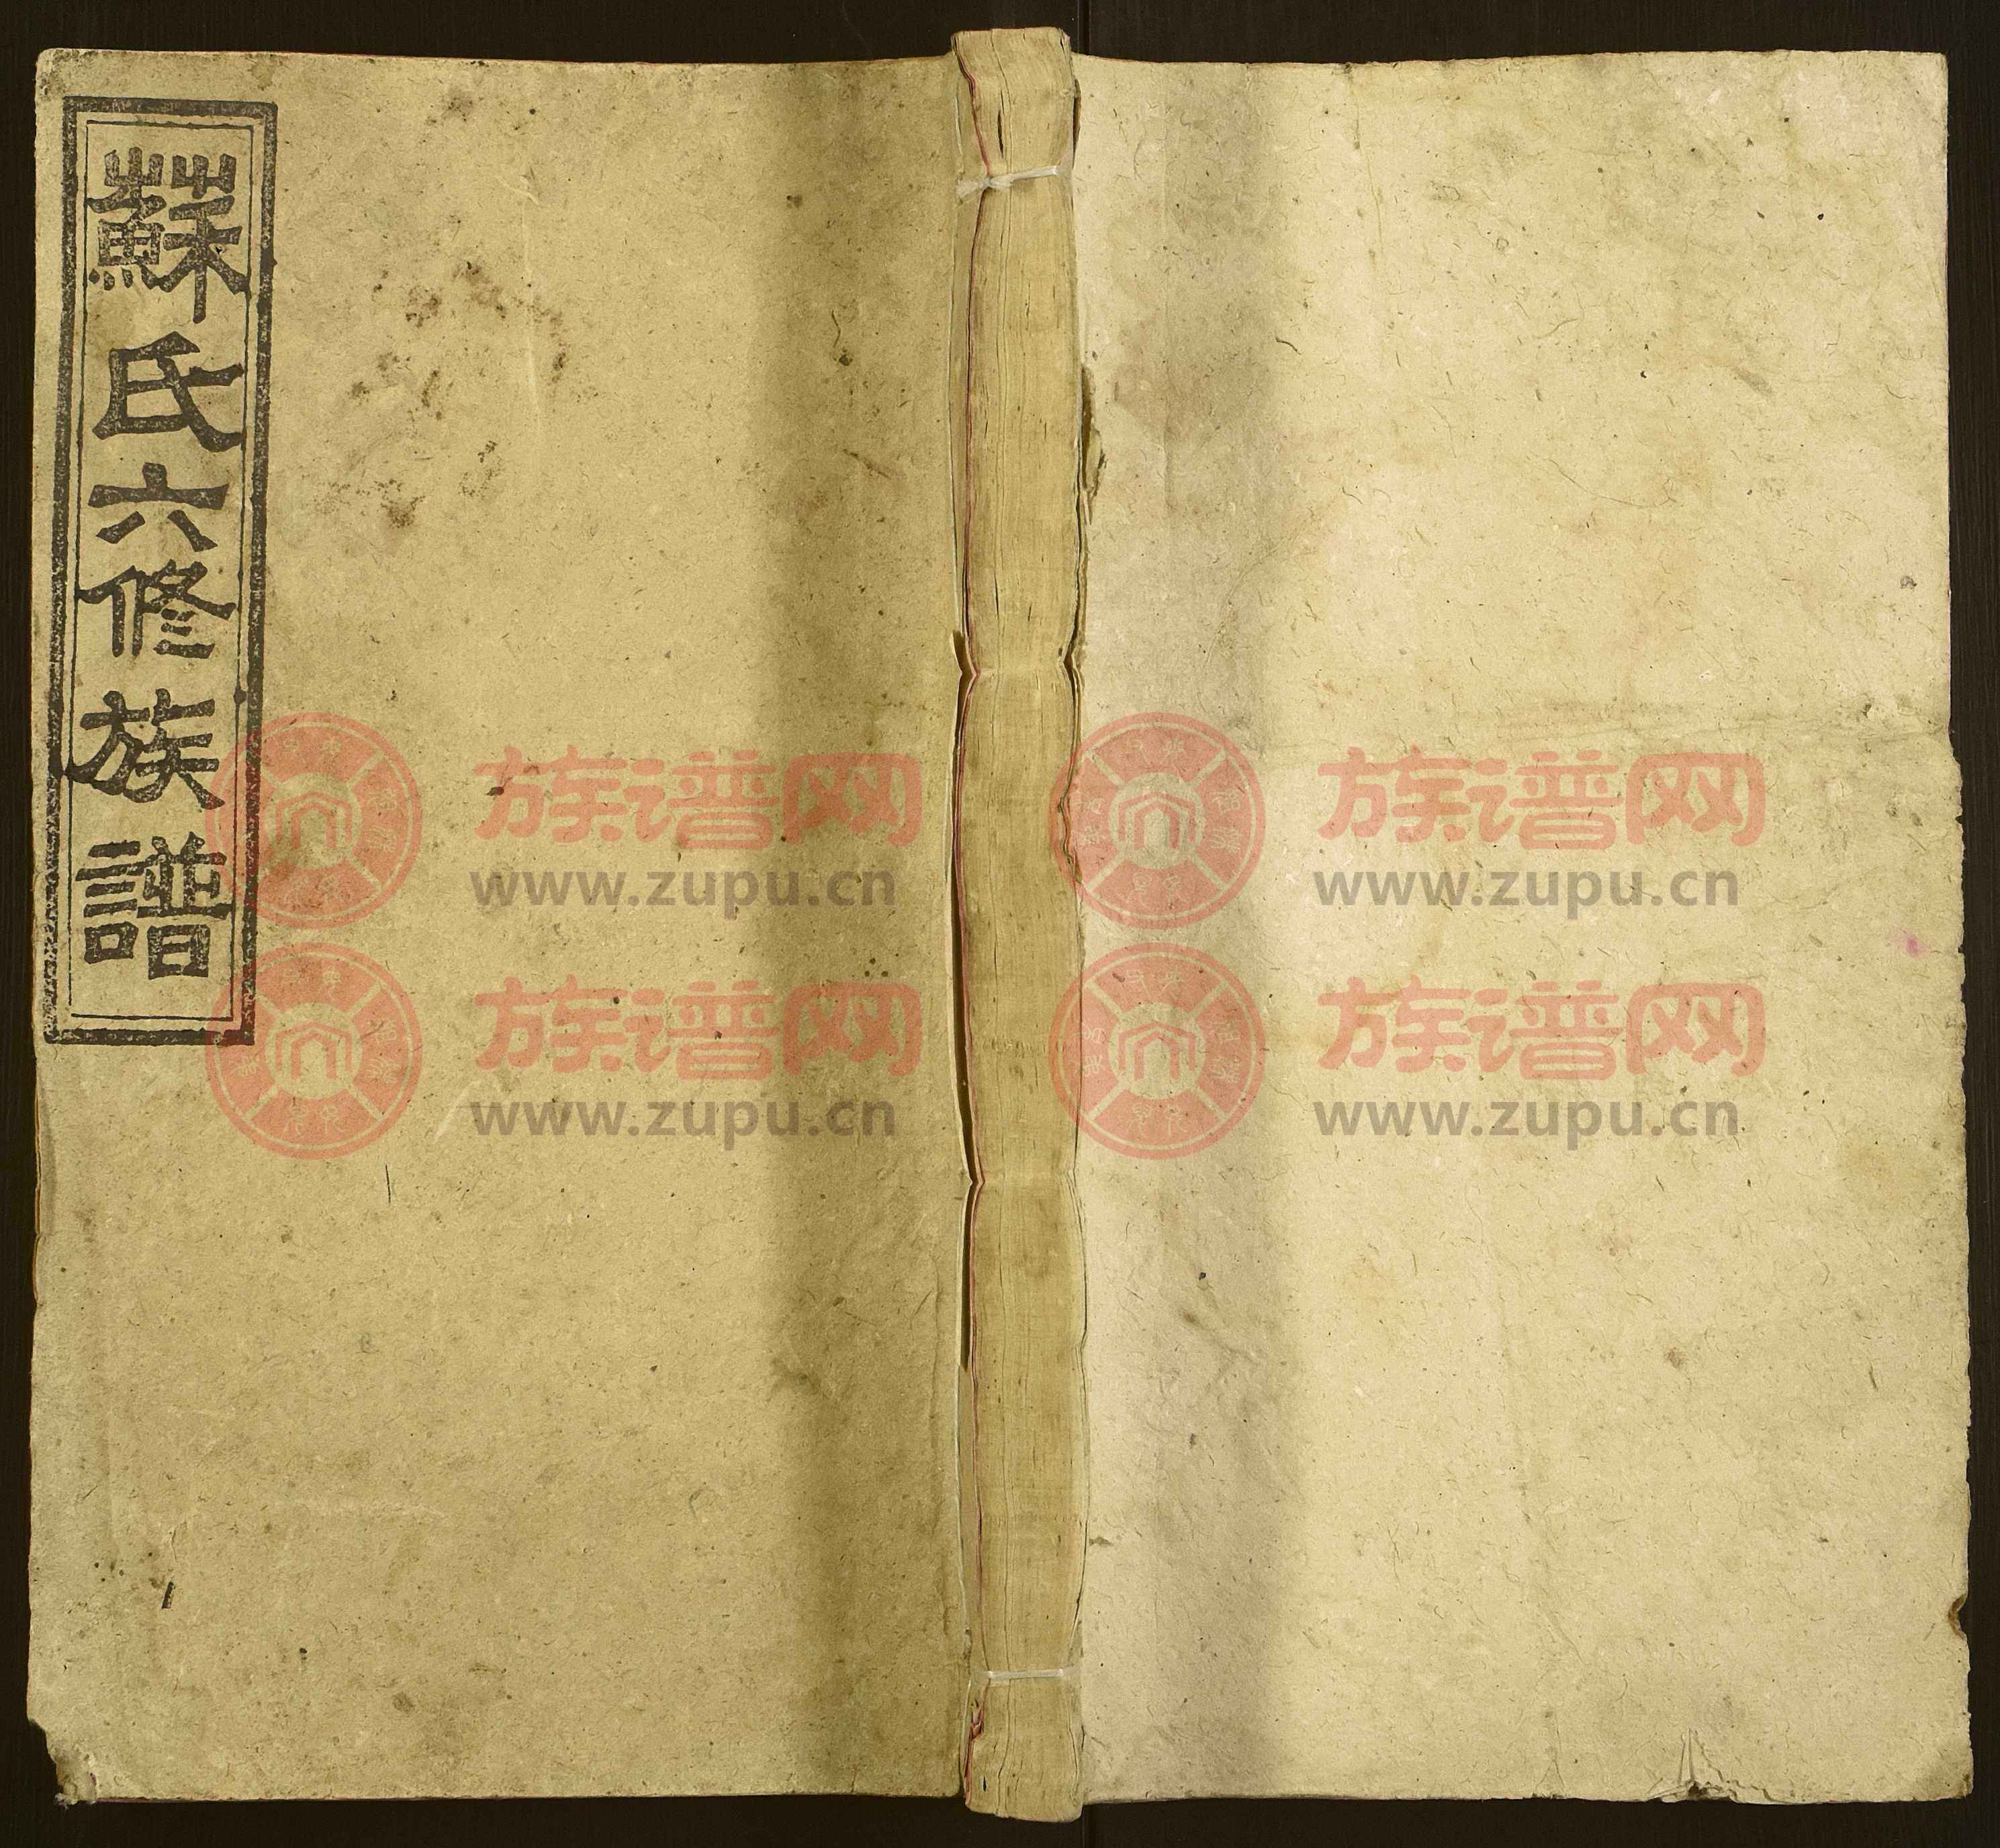 蘇氏六修族譜
族谱网 族谱网
www.zupu.cn www.zupu.cn
族谱网 族谱网
www.zupu.cn www.zupu.cn